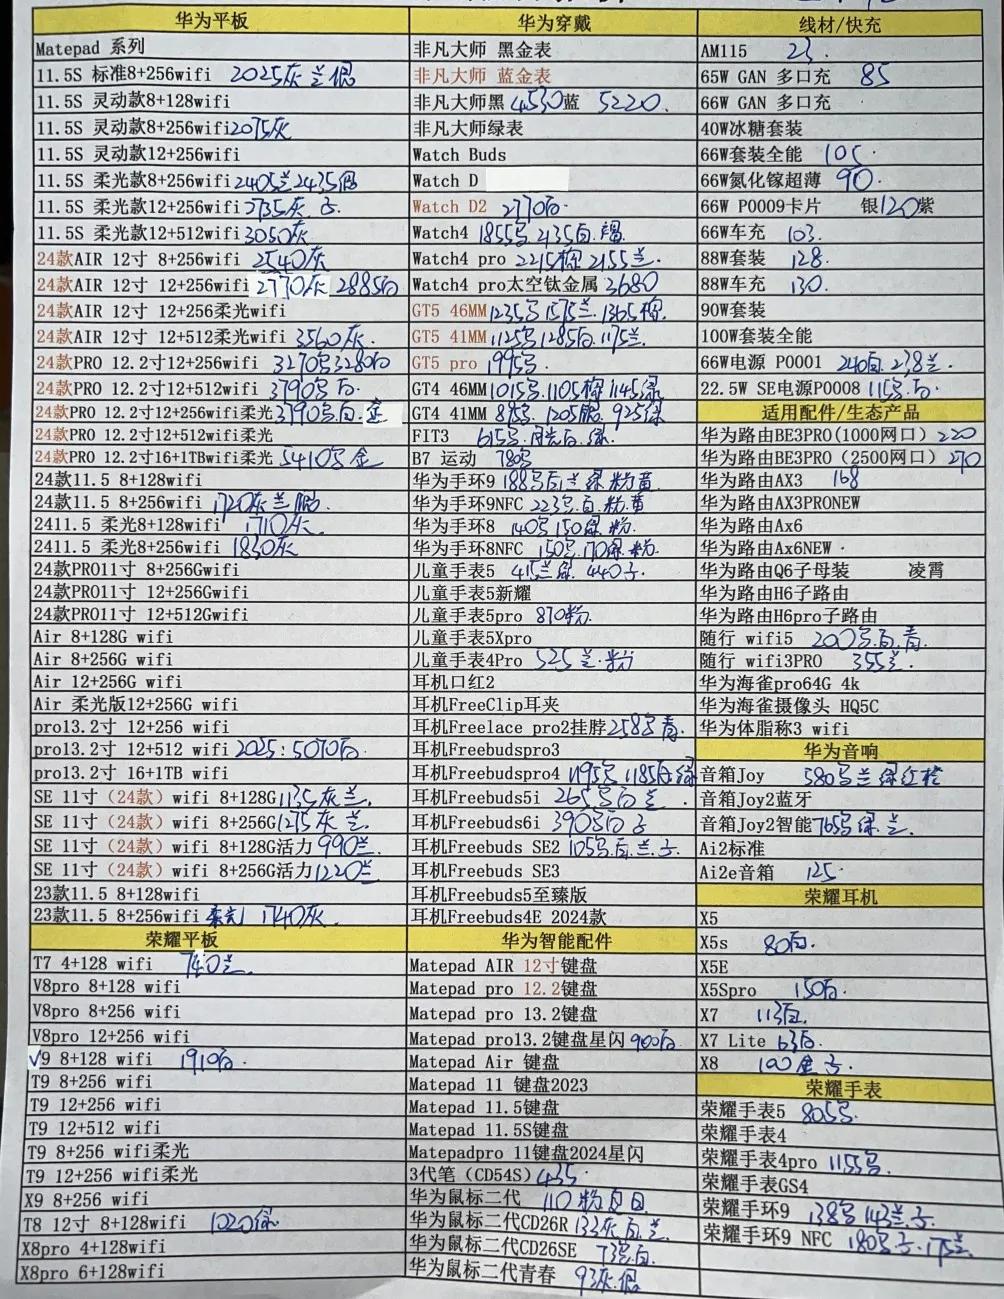 华为平板
Matepad 系列
11.5S 标准8+256wifi 2025灰 兰 银
11.5S 灵动款8+128wifi
11.5S 灵动款8+256wifi 2075灰
11.5S 灵动款12+256wifi
11.5S 柔光款8+256wifi 2405兰 2435银
11.5S 柔光款12+256wifi 2735灰
11.5S 柔光款12+512wifi 3050灰
24款AIR 12寸 8+256wifi 2540灰
24款AIR 12寸 12+256wifi 2770灰 2885白
24款AIR 12寸 12+256柔光wifi
24款AIR 12寸 12+512柔光wifi 3560灰.
24款PRO 12.2寸12+256wifi 3270 3280白
24款PRO 12.2寸12+512wifi 3790 白
24款PRO 12.2寸12+256wifi柔光 3790 白 金
24款PRO 12.2寸12+512wifi柔光
24款PRO 12.2寸16+1TBwifi柔光 5410 金
24款11.5 8+128wifi
24款11.5 8+256wifi 1720灰 兰
2411.5 柔光8+128wifi 1710灰
2411.5 柔光8+256wifi 1830灰
24款PRO11寸 8+256Gwifi
24款PRO11寸 12+256Gwifi
24款PRO11寸 12+512Gwifi
Air 8+128G wifi
Air 8+256G wifi
Air 12+256G wifi
Air 柔光版12+256G wifi
pro13.2寸 12+256 wifi
pro13.2寸 12+512 wifi 2025: 5070白.
pro13.2寸 16+1TB wifi
SE 11寸（24款）wifi 8+128G 1135灰 兰.
SE 11寸（24款）wifi 8+256G 1275灰 兰.
SE 11寸（24款）wifi 8+128G活力 990兰
SE 11寸（24款）wifi 8+256G活力 1220兰
23款11.5 8+128wifi
23款11.5 8+256wifi 柔光 1740灰.
荣耀平板
T7 4+128 wifi 740兰.
V8pro 8+128 wifi
V8pro 8+256 wifi
V8pro 12+256 wifi
V9 8+128 wifi 1910白.
T9 8+256 wifi
T9 12+256 wifi
T9 12+512 wifi
T9 8+256 wifi柔光
T9 12+256 wifi柔光
X9 8+256 wifi
T8 12寸 8+128wifi 1020绿
X8pro 4+128wifi
X8pro 6+128wifi
华为穿戴
非凡大师 黑金表
非凡大师 蓝金表
非凡大师黑 4530 蓝 5220.
非凡大师绿表
Watch Buds
Watch D
Watch D2 2770白.
Watch4 1855 2135白.
Watch4 pro 2215棕 2155兰.
Watch4 pro太空钛金属 3680
GT5 46MM 1235 1575兰. 1365棕.
GT5 41MM 1125 1285白. 1175兰.
GT5 pro 1995
GT4 46MM 1015 1105棕 1145绿
GT4 41MM 875 1205 925绿
FIT3 615 白 绿.
B7 运动 780
华为手环9 188 白 兰 绿 粉 黄
华为手环9NFC 223 白 粉 黄
华为手环8 140 150绿 粉.
华为手环8NFC 150 170绿 粉.
儿童手表5 415兰 绿. 440
儿童手表5新耀
儿童手表5pro 870粉.
儿童手表5Xpro
儿童手表4Pro 525兰.粉
耳机口红2
耳机FreeClip耳夹
耳机Freelace pro2挂脖 258 青.
耳机Freebudspro3
耳机Freebudspro4 1195 1185白 绿
耳机Freebuds5i 265 白 兰.
耳机Freebuds6i 390 白
耳机Freebuds SE2 105 白.兰.
耳机Freebuds SE3
耳机Freebuds5至臻版
耳机Freebuds4E 2024款
华为智能配件
Matepad AIR 12寸键盘
Matepad pro 12.2键盘
Matepad pro 13.2键盘
Matepad pro13.2键盘星闪 900白
Matepad Air 键盘
Matepad 11 键盘2023
Matepad 11.5键盘
Matepad 11.5S键盘
Matepadpro 11键盘2024星闪
3代笔（CD54S）435.
华为鼠标二代 110 粉 白
华为鼠标二代CD26R 132灰 白 兰
华为鼠标二代CD26SE 白.
华为鼠标二代青春 93灰.银
线材/快充
AM115 23.
65W GAN 多口充 85
66W GAN 多口充
40W冰糖套装
66W套装全能 105.
66W氮化镓超薄 90.
66W P0009卡片 银120紫
66W车充 103.
88W套装 128.
88W车充 130.
90W套装
100W套装全能
66W电源 P0001 240白 238兰.
22.5W SE电源P0008 115 白.
适用配件/生态产品
华为路由BE3PRO(1000网口) 220
华为路由BE3PRO (2500网口) 270
华为路由AX3 168
华为路由AX3PRONEW
华为路由Ax6
华为路由Ax6NEW
华为路由Q6子母装 凌霄
华为路由H6子路由
华为路由H6pro子路由
随行 wifi5 200 白.青
随行 wifi3PRO 355兰.
华为海雀pro64G 4k
华为海雀摄像头 HQ5C
华为体脂称3 wifi
华为音响
音箱Joy 580 兰 绿 红 橙
音箱Joy2蓝牙
音箱Joy2智能 765 绿 兰.
Ai2标准
Ai2e音箱 125.
荣耀耳机
X5
X5s 80白.
X5E
X5Spro 150白.
X7 113白.
X7 Lite 63白.
X8 100
荣耀手表
荣耀手表5 805
荣耀手表4
荣耀手表4pro 1155
荣耀手表GS4
荣耀手环9 138 143兰.
荣耀手环9 NFC 180 175兰.